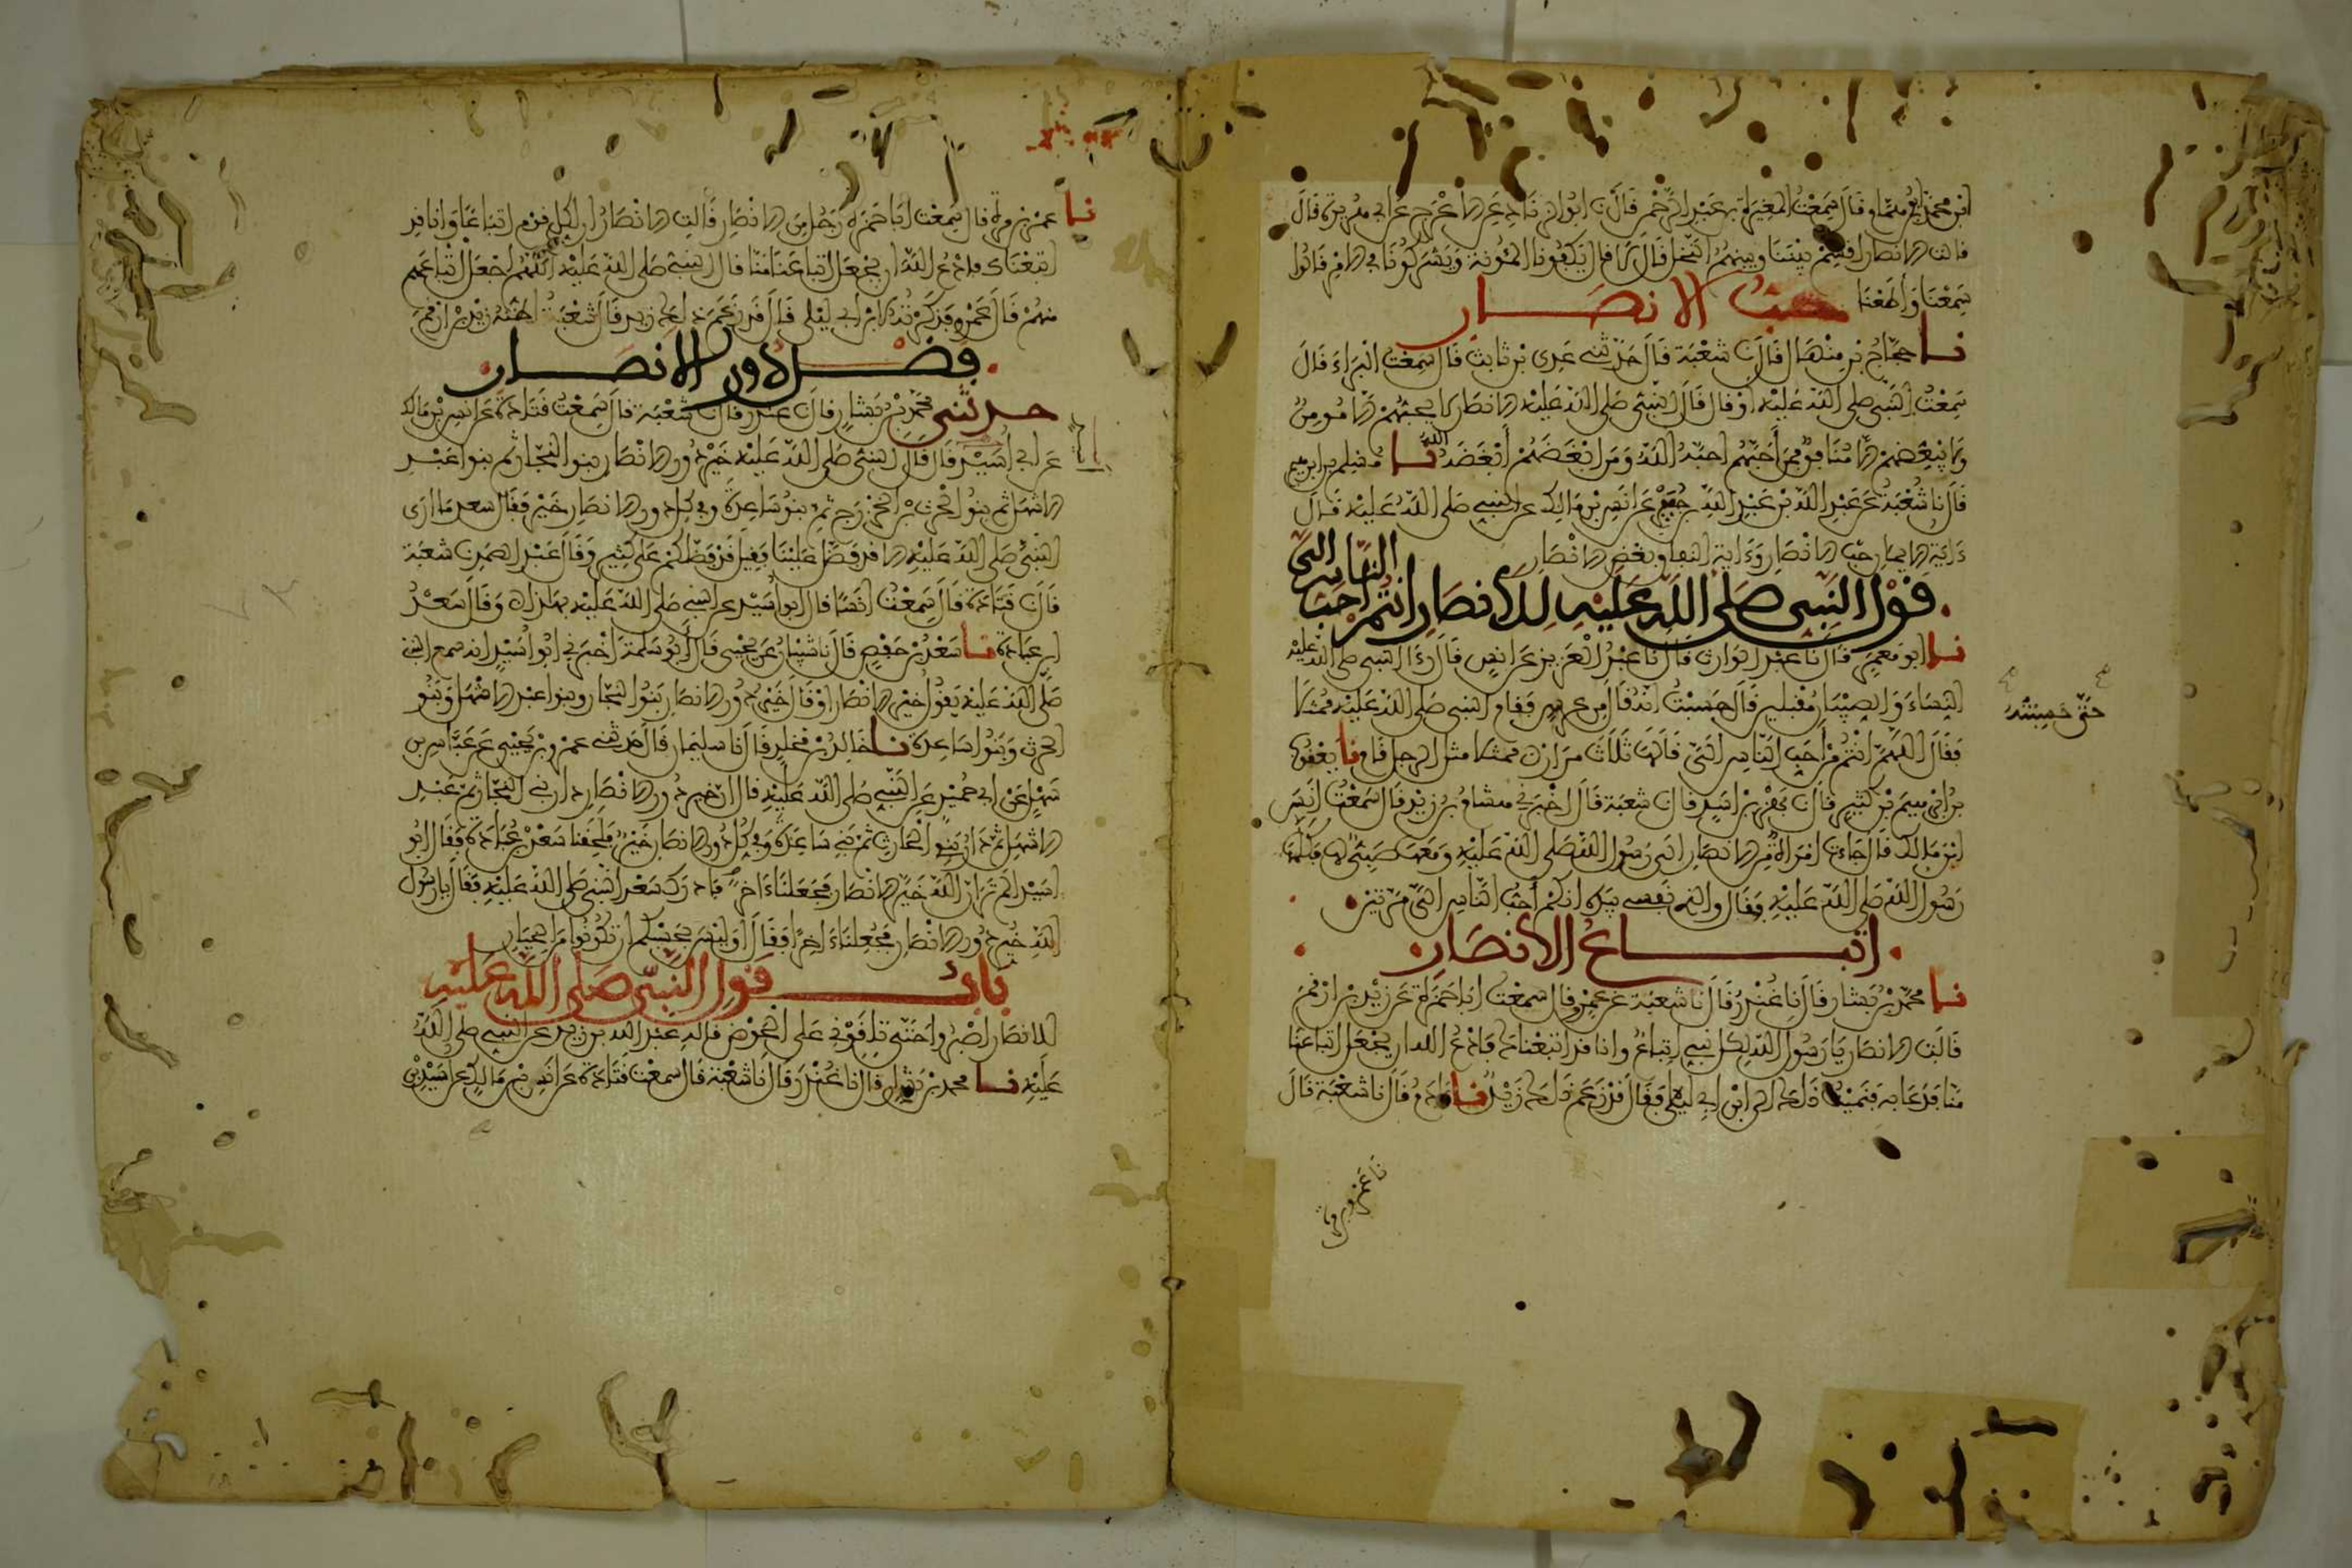 ابن محمد ابو همام قال سمعت المغيرة بن عبد الرحمن قال نا ابو الزناد عن الاعرج عن ابي هريرة قال
قالت الانصار اقسم بيننا وبينهم النخل قال لا قال تكفونا المئونة وتشركونا في الامر قالوا
سمعنا واطعنا حب الانصار
نا حجاج بن منهال قال نا شعبة قال حدثني عدي بن ثابت قال سمعت البراء قال
سمعت النبي صلى الله عليه او قال قال النبي صلى الله عليه الانصار لا يحبهم الا مومن
ولا يبغضهم الا منافق فمن احبهم احبه الله ومن ابغضهم ابغضه الله نا مسلم بن ابرهيم
قال نا شعبة عن عبد الله بن عبد الله بن جبر عن انس بن مالك عن النبي صلى الله عليه قال
ءاية الايمان حب الانصار وءاية النفاق بغض الانصار
قول النبي صلى الله عليه للانصار انتم احب الناس الي
نا ابو معمر قال نا عبد الوارث قال نا عبد العزيز عن انس قال رءا النبي صلى الله عليه
النساء والصبيان مقبلين قال حسبت انه قال من عرس فقام النبي صلى الله عليه ممثلا
فقال اللهم انتم من احب الناس الي قالها ثلاث مرات نا يعقوب
حتى حسبته
بن ابرهيم بن كثير قال نا بهز بن اسد قال نا شعبة قال اخبرني هشام بن زيد قال سمعت انس
ابن مالك قال جاءت امراة من الانصار الى رسول الله صلى الله عليه ومعها صبي لها فكلمها
رسول الله صلى الله عليه فقال والذي نفسي بيده انكم احب الناس الي مرتين
اتباع الانصار
نا محمد بن بشار قال نا غندر قال نا شعبة عن عمرو قال سمعت ابا حمزة عن زيد بن ارقم
قالت الانصار يا رسول الله لكل نبي اتباع وانا قد اتبعناك فادع الله ان يجعل اتباعنا
منا فدعا به فنميت ذلك الى ابن ابي ليلى فقال قد زعم ذلك زيد نا ءادم قال نا شعبة قال
نا عمرو بن مرة
نا عمرو بن مرة قال سمعت ابا حمزة رجل من الانصار قالت الانصار ان لكل قوم اتباعا وانا قد
اتبعناك فادع الله ان يجعل اتباعنا منا قال النبي صلى الله عليه اللهم اجعل اتباعهم
منهم قال عمرو فذكرته لابن ابي ليلى قال قد زعم ذلك زيد قال شعبة اظنه زيد بن ارقم
فضل دور الانصار
حدثني محمد بن بشار قال نا غندر قال نا شعبة قال سمعت قتادة عن انس بن مالك
عن ابي اسيد قال قال النبي صلى الله عليه خير دور الانصار بنوا النجار ثم بنوا عبد
الاشهل ثم بنو الحرث بن الخزرج ثم بنو ساعدة وفي كل دور الانصار خير فقال سعد ما ارى
النبي صلى الله عليه الا قد فضل علينا فقيل قد فضلكم على كثير وقال عبد الصمد نا شعبة
قال نا قتادة قال سمعت انسا قال ابو اسيد عن النبي صلى الله عليه بهذا وقال سعد
بن عبادة نا سعد بن حفص قال نا شيبان عن يحيى قال ابو سلمة اخبرني ابو اسيد انه سمع النبي
صلى الله عليه يقول خير الانصار او قال خير دور الانصار بنوا النجار وبنوا عبد الاشهل وبنو
الحرث وبنوا ساعدة نا خالد بن مخلد قال نا سليمان قال حدثني عمرو بن يحيى عن عباس بن
سهل عن ابي حميد عن النبي صلى الله عليه قال ان خير دور الانصار دار بني النجار ثم عبد
الاشهل ثم دار بني الحارث ثم بني ساعدة وفي كل دور الانصار خير فلحقنا سعد بن عبادة فقال ابو
اسيد الم تر ان الله خير الانصار فجعلنا ءاخرا فادرك سعد النبي صلى الله عليه فقال يا رسول
الله خير دور الانصار فجعلنا ءاخرا فقال اوليس بحسبكم ان تكونوا من الخيار
باب قول النبي صلى الله عليه
للانصار اصبروا حتى تلقوني على الحوض قاله عبد الله بن زيد عن النبي صلى الله
عليه نا محمد بن بشار قال نا غندر قال نا شعبة قال سمعت قتادة عن انس بن مالك عن اسيد بن